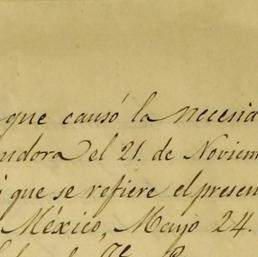 que causó la necesid
ndora el 21. de Noviem
que se refiere el presen
México, Mayo 24.